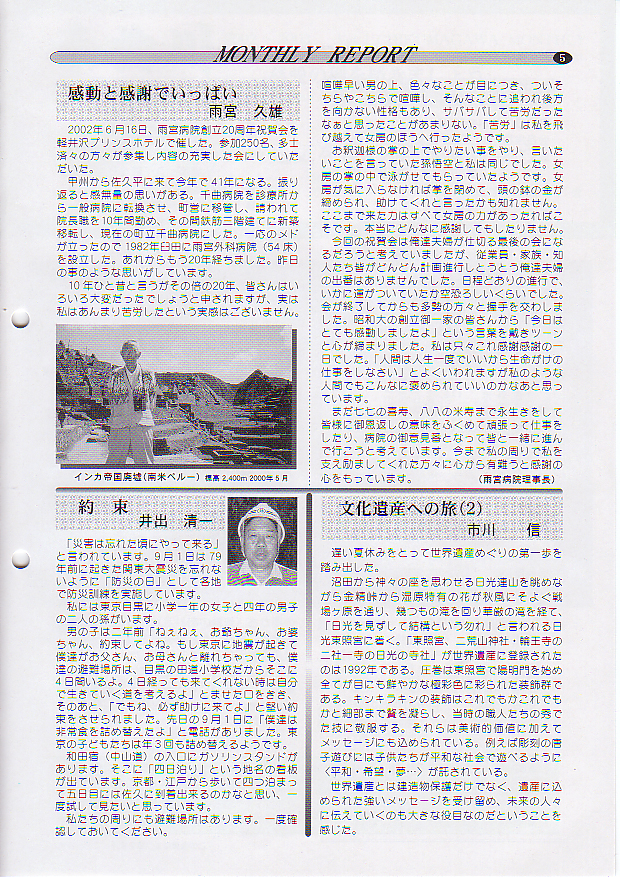 MONTHLY REPORT
5
感動と感謝でいっぱい
雨宮 久雄
2002年6月16日、雨宮病院創立20周年祝賀会を
軽井沢プリンスホテルで催した。参加250名、多士
済々の方々が参集し内容の充実した会にしていた
だいた。
甲州から佐久平に来て今年で41年になる。振り
返ると感無量の思いがある。千曲病院を診療所か
ら一般病院に転換させ、町営に移管し、請われて
院長職を10年間勤め、その間鉄筋三階建てに新築
移転し、現在の町立千曲病院にした。一応のメド
が立ったので1982年臼田に雨宮外科病院（54床）
を設立した。あれからもう20年経ちました。昨日
の事のような思いがしています。
10年ひと昔と言うがその倍の20年、皆さんはい
ろいろ大変だったでしょうと申されますが、実は
私はあんまり苦労したという実感はございません。
インカ帝国廃墟(南米ペルー) 標高2,400m 2000年5月
喧嘩早い男の上、色々なことが目につき、ついそ
ちらやこちらで喧嘩し、そんなことに追われ後方
を向かない性格もあり、サバサバして苦労だった
なぁと思ったことがあまりない。「苦労」は私を飛
び越えて女房のほうへ行ったようです。
お釈迦様の掌の上でやりたい事をやり、言いた
いことを言っていた孫悟空と私は同じでした。女
房の掌の中で泳がせてもらっていたようです。女
房が気に入らなければ掌を閉めて、頭の鉢の金が
締められ、助けてくれと言ったかも知れません。
ここまで来た力はすべて女房の力があったればこ
そです。本当にどんなに感謝してもしたりません。
今回の祝賀会は俺達夫婦が仕切る最後の会にな
るだろうと考えていましたが、従業員・家族・知
人たち皆がどんどん計画進行しとうとう俺達夫婦
の出番はありませんでした。日程どおりの進行で、
いかに運がついていたか空恐ろしいくらいでした。
会が終了してからも多勢の方々と握手を交わしま
した。昭和大の創立御一家の皆さんから「今日は
とても感動しましたよ」という言葉を戴きツーン
と心が締まりました。私は只々これ感謝感謝の一
日でした。「人間は人生一度でいいから生命がけの
仕事をしなさい」とよくいわれますが私のような
人間でもこんなに褒められていいのかなあと思っ
ています。
まだ七七の喜寿、八八の米寿まで永生きをして
皆様に御恩返しの意味をふくめて頑張って仕事を
したり、病院の御意見番となって皆と一緒に進ん
で行こうと考えています。今まで私の周りで私を
支え励ましてくれた方々に心から有難うと感謝の
心をもっています。 （雨宮病院理事長）
約 束
井出 清一
「災害は忘れた頃にやって来る」
と言われています。9月1日は79
年前に起きた関東大震災を忘れな
いように「防災の日」として各地
で防災訓練を実施しています。
私には東京目黒に小学一年の女子と四年の男子
の二人の孫がいます。
男の子は二年前「ねぇねぇ、お爺ちゃん、お婆
ちゃん、約束してよね。もし東京に地震が起きて
僕達がお父さん、お母さんと離れちゃっても、僕
達の避難場所は、目黒の田道小学校だからそこに
4日間いるよ。4日経っても来てくれない時は自分
で生きていく道を考えるよ」とませた口をきき、
そのあと、「でもね、必ず助けに来てよ」と堅い約
束をさせられました。先日の9月1日に「僕達は
非常食を詰め替えたよ」と電話がありました。東
京の子どもたちは年3回も詰め替えるようです。
和田宿（中山道）の入口にガソリンスタンドが
あります。そこに「四日泊り」という地名の看板
が出ています。京都・江戸から歩いて四つ泊まっ
て五日目には佐久に到着出来るのかなと思い、一
度試して見たいと思っています。
私たちの周りにも避難場所はあります。一度確
認しておいてください。
文化遺産への旅(2)
市川 信
遅い夏休みをとって世界遺産めぐりの第一歩を
踏み出した。
沼田から神々の座を思わせる日光連山を眺めな
がら金精峠から湿原特有の花が秋風にそよぐ戦
場ヶ原を通り、幾つもの滝を回り華厳の滝を経て、
「日光を見ずして結構という勿れ」と言われる日
光東照宮に着く。「東照宮、二荒山神社・輪王寺の
二社一寺の日光の寺社」が世界遺産に登録された
のは1992年である。圧巻は東照宮で陽明門を始め
全てが目にも鮮やかな極彩色に彩られた装飾群で
ある。キンキラキンの装飾はこれでもかこれでも
かと細部まで贅を凝らし、当時の職人たちの秀で
た技に敬服する。それらは美術的価値に加えて
メッセージにも込められている。例えば彫刻の唐
子遊びには子供たちが平和な社会で遊べるように
〈平和・希望・夢…〉が託されている。
世界遺産とは建造物保護だけでなく、遺産に込
められた強いメッセージを受け留め、未来の人々
に伝えていくのも大きな役目なのだということを
感じた。